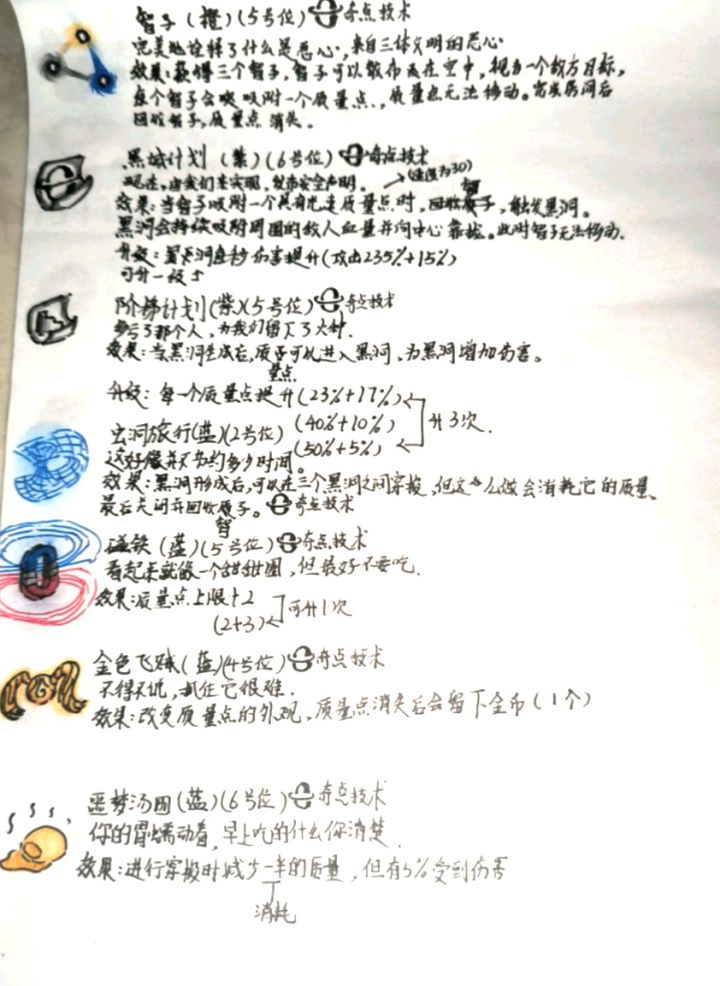 智子(橙)(5号位) 奇点技术
完美地诠释了什么是恶心,来自三体文明的恶心
效果:获得三个智子,智子可以散布在空中,视为一个敌方目标,
每个智子会吸附一个质量点,质量点无法移动。离房间后
回收智子,质量点消失。
黑域计划(紫)(6号位) 奇点技术
现在,由我们来实现,发布安全声明。 →(速度为30)
效果:当智子吸附一个具有光速质量点时,回收智子,触发黑洞。
黑洞会持续吸附周围的敌人血量并向中心靠拢。此时智子无法移动.
升级:黑洞每秒伤害提升(攻击235%+15%)
可升一级↑
阶梯计划(紫)(5号位) 奇点技术
多亏了那个人,为我们留下了火种.
效果:当黑洞生成后,质量点可以进入黑洞,为黑洞增加伤害。
升级:每一个质量点提升(23%+17%)
(40%+10%) 升3次.
虫洞旅行(蓝)(2号位) (50%+5%)
这好像并不节约多少时间。
效果:黑洞形成后,可以在三个黑洞之间穿梭,但这么做会消耗它的质量、
最后关闭并回收智子。 奇点技术
磁铁(蓝)(5号位) 奇点技术
看起来就像一个甜甜圈,但最好不要吃.
效果:质量点上限+2
(2+3) 可升1次
金色飞贼(蓝)(4号位) 奇点技术
不得不说,抓住它很难.
效果:改变质量点的外观,质量点消失后会留下金币(1个)
噩梦汤圆(蓝)(6号位) 奇点技术
你的胃蠕动着,早上吃的什么你清楚.
效果:进行穿梭时减少一半的质量,但有5%受到伤害
消耗